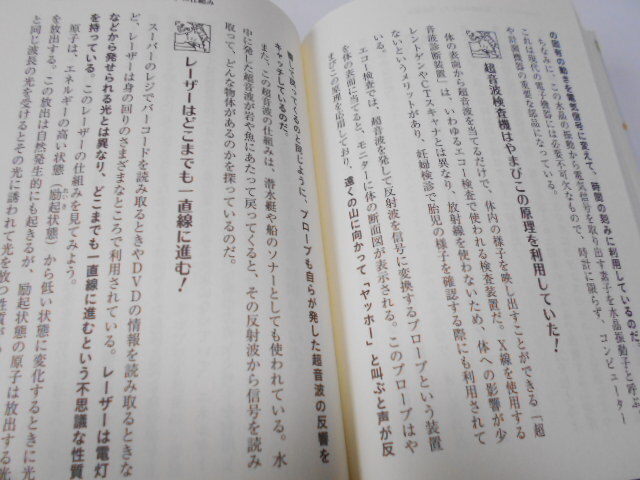 の固有の動きを電気信号に変えて、時間の刻みに利用しているのだ。
ちなみに、この水晶の振動から電気信号を取り出す素子を水晶振動子と呼ぶ
これは現代の電子機器には必要不可欠なもので、時計に限らず、コンピューター
や計測機器の重要な部品になっている。
超音波検査機はやまびこの原理を利用していた！
体の表面から超音波を当てるだけで、体内の様子を映し出すことができる「超
音波診断装置」は、いわゆるエコー検査で使われる検査装置だ。X線を使用する
レントゲンやCTスキャナとは異なり、放射線を使わないため、体への影響が少
ないというメリットがあり、妊婦検診で胎児の様子を確認する際にも利用されて
エコー検査では、超音波を発して反射波を信号に変換するプローブという装置
を体の表面に当てると、モニターに体の断面図が表示される。このプローブはや
まびこの原理を応用しており、遠くの山に向かって「ヤッホー」と叫ぶと声が反
射して戻ってくるのと同じように、プローブも自らが発した超音波の反響を
キャッチしているのだ。
また、この超音波の仕組みは、潜水艇や船のソナーとしても使われている。水
中に発した超音波が岩や魚にあたって戻ってくると、その反射波から信号を読み
取って、どんな物体があるのかを探っているのだ。
レーザーはどこまでも一直線に進む！
スーパーのレジでバーコードを読み取るときやDVDの情報を読み取るときな
ど、レーザーは身の回りのさまざまなところで利用されている。レーザーは電灯
などから発せられる光とは異なり、どこまでも一直線に進むという不思議な性質
を持っている。このレーザーの仕組みを見てみよう。
原子は、エネルギーの高い状態（励起状態）から低い状態に変化するときに光
を放出する。この放出は自然発生的にも起きるが、励起状態の原子は放出する光
と同じ波長の光を受けるとその光に誘われて光を放つ性質が